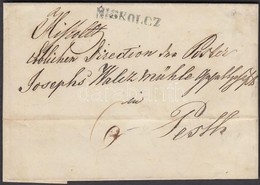 MISKOLCZ
Löblichen Direction der Pester
Josephs Walzmühle Gesellschaft
in
Pesth